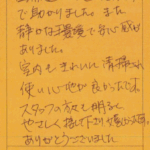 で助かりました。また
静かな環境で安心感が
ありました。
室内もきれいに清掃され
使いい心地が良かったです。
スタッフの方も明るく
やさしく接して下さり
ありがとうございました